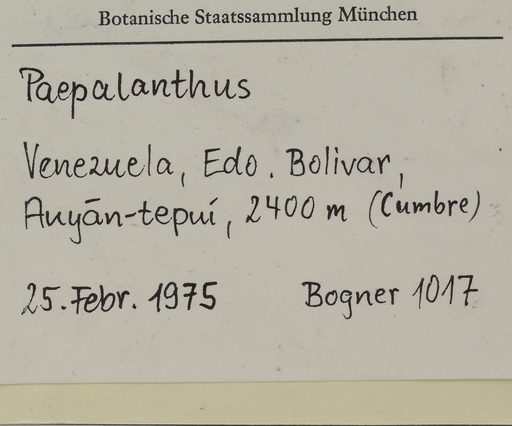 Botanische Staatssammlung München
Paepalanthus
Venezuela, Edo. Bolivar,
Auyān-tepuí, 2400 m (Cumbre)
25. Febr. 1975 Bogner 1017